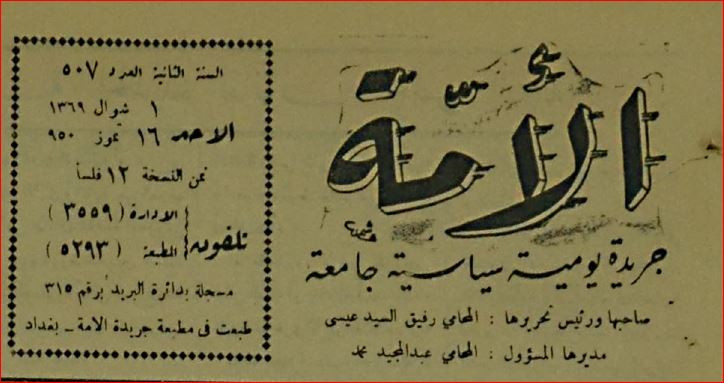 الأمّة
جريدة يومية سياسية جامعة
صاحبها ورئيس تحريرها : المحامي رفيق السيد عيسى
مديرها المسؤول : المحامي عبدالمجيد محمد
السنة الثانية العدد ٥٠٧
١ شوال ١٣٦٩
الاحد ١٦ تموز ٩٥٠
ثمن النسخة ١٢ فلساً
تلفون
الادارة ( ٣٥٥٩ )
المطبعة ( ٥٢٩٣ )
مسجلة بدائرة البريد برقم ٣١٥
طبعت في مطبعة جريدة الامة - بغداد